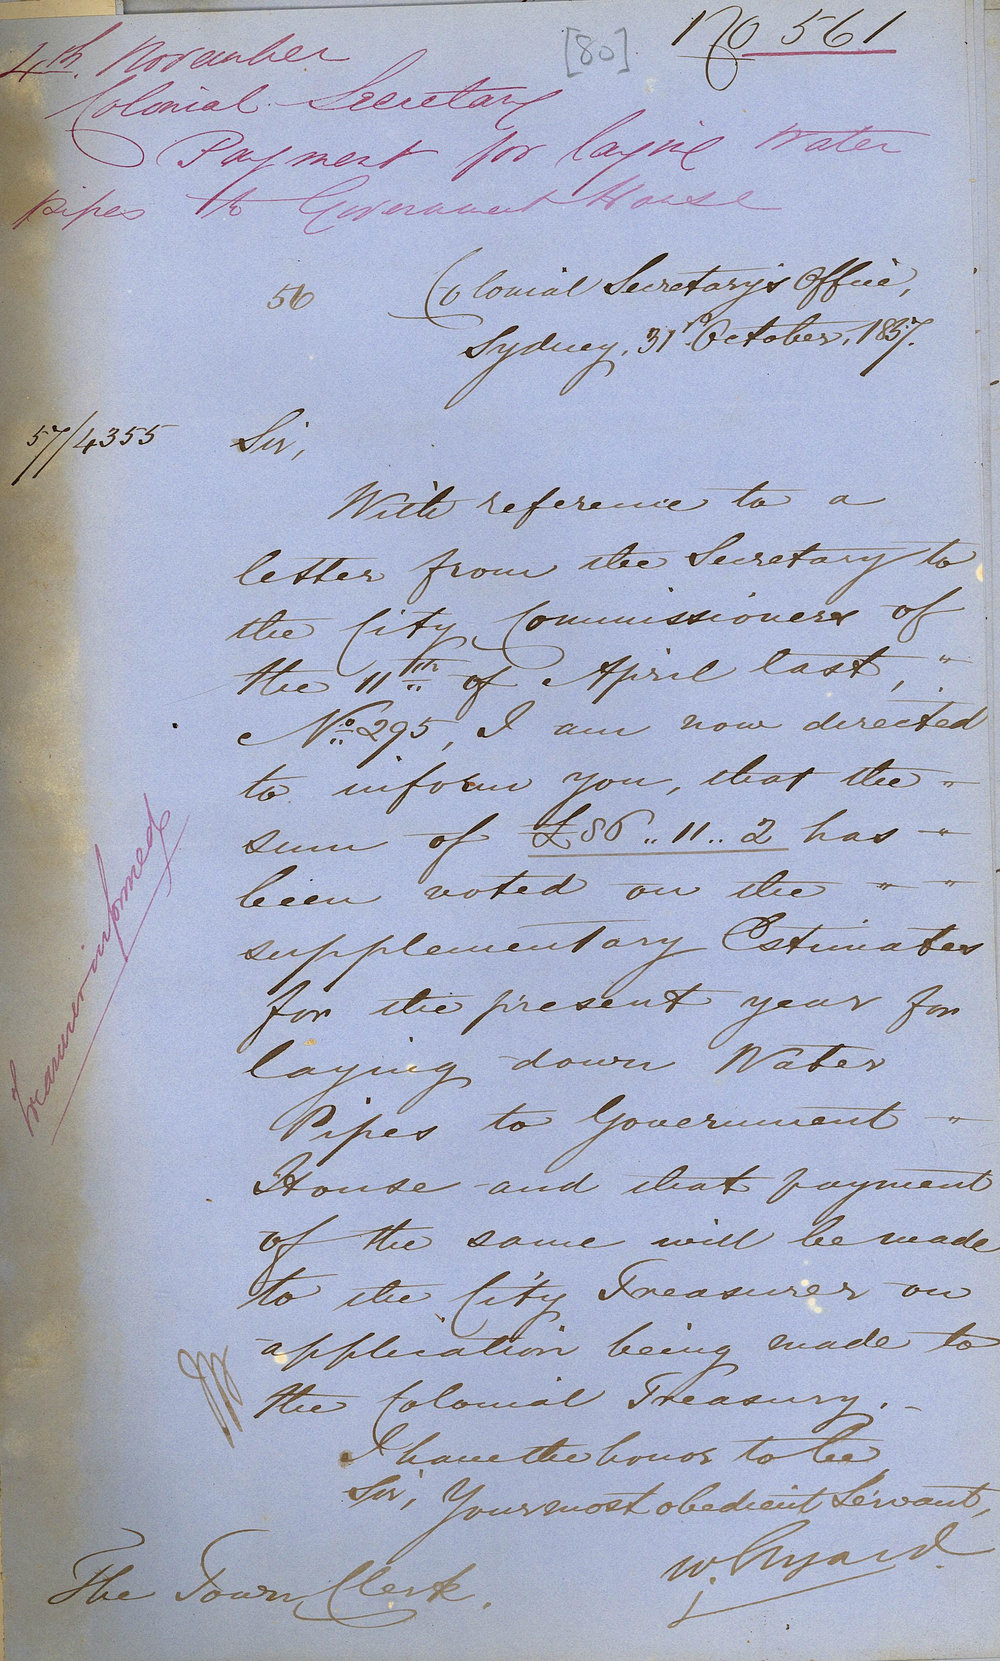 No 561
[80]
4th. November
Colonial Secretary
Payment for laying Water
pipes to Government House
56
Colonial Secretary's Office,
Sydney, 31st October, 1857.
57/4355
Sir,
With reference to a
letter from the Secretary to
the City Commissioners of
the 11th of April last, "
No 295, I am now directed
to inform you, that the "
sum of £86..11..2 has "
been voted on the " "
supplementary Estimates
for the present year for
laying down Water
Pipes to Government "
House and that payment
of the same will be made
to the City Treasurer on
application being made to
the Colonial Treasury.
Treasurer informed
I have the honor to be
Sir, Your most obedient Servant,
W. Elyard.
The Town Clerk.